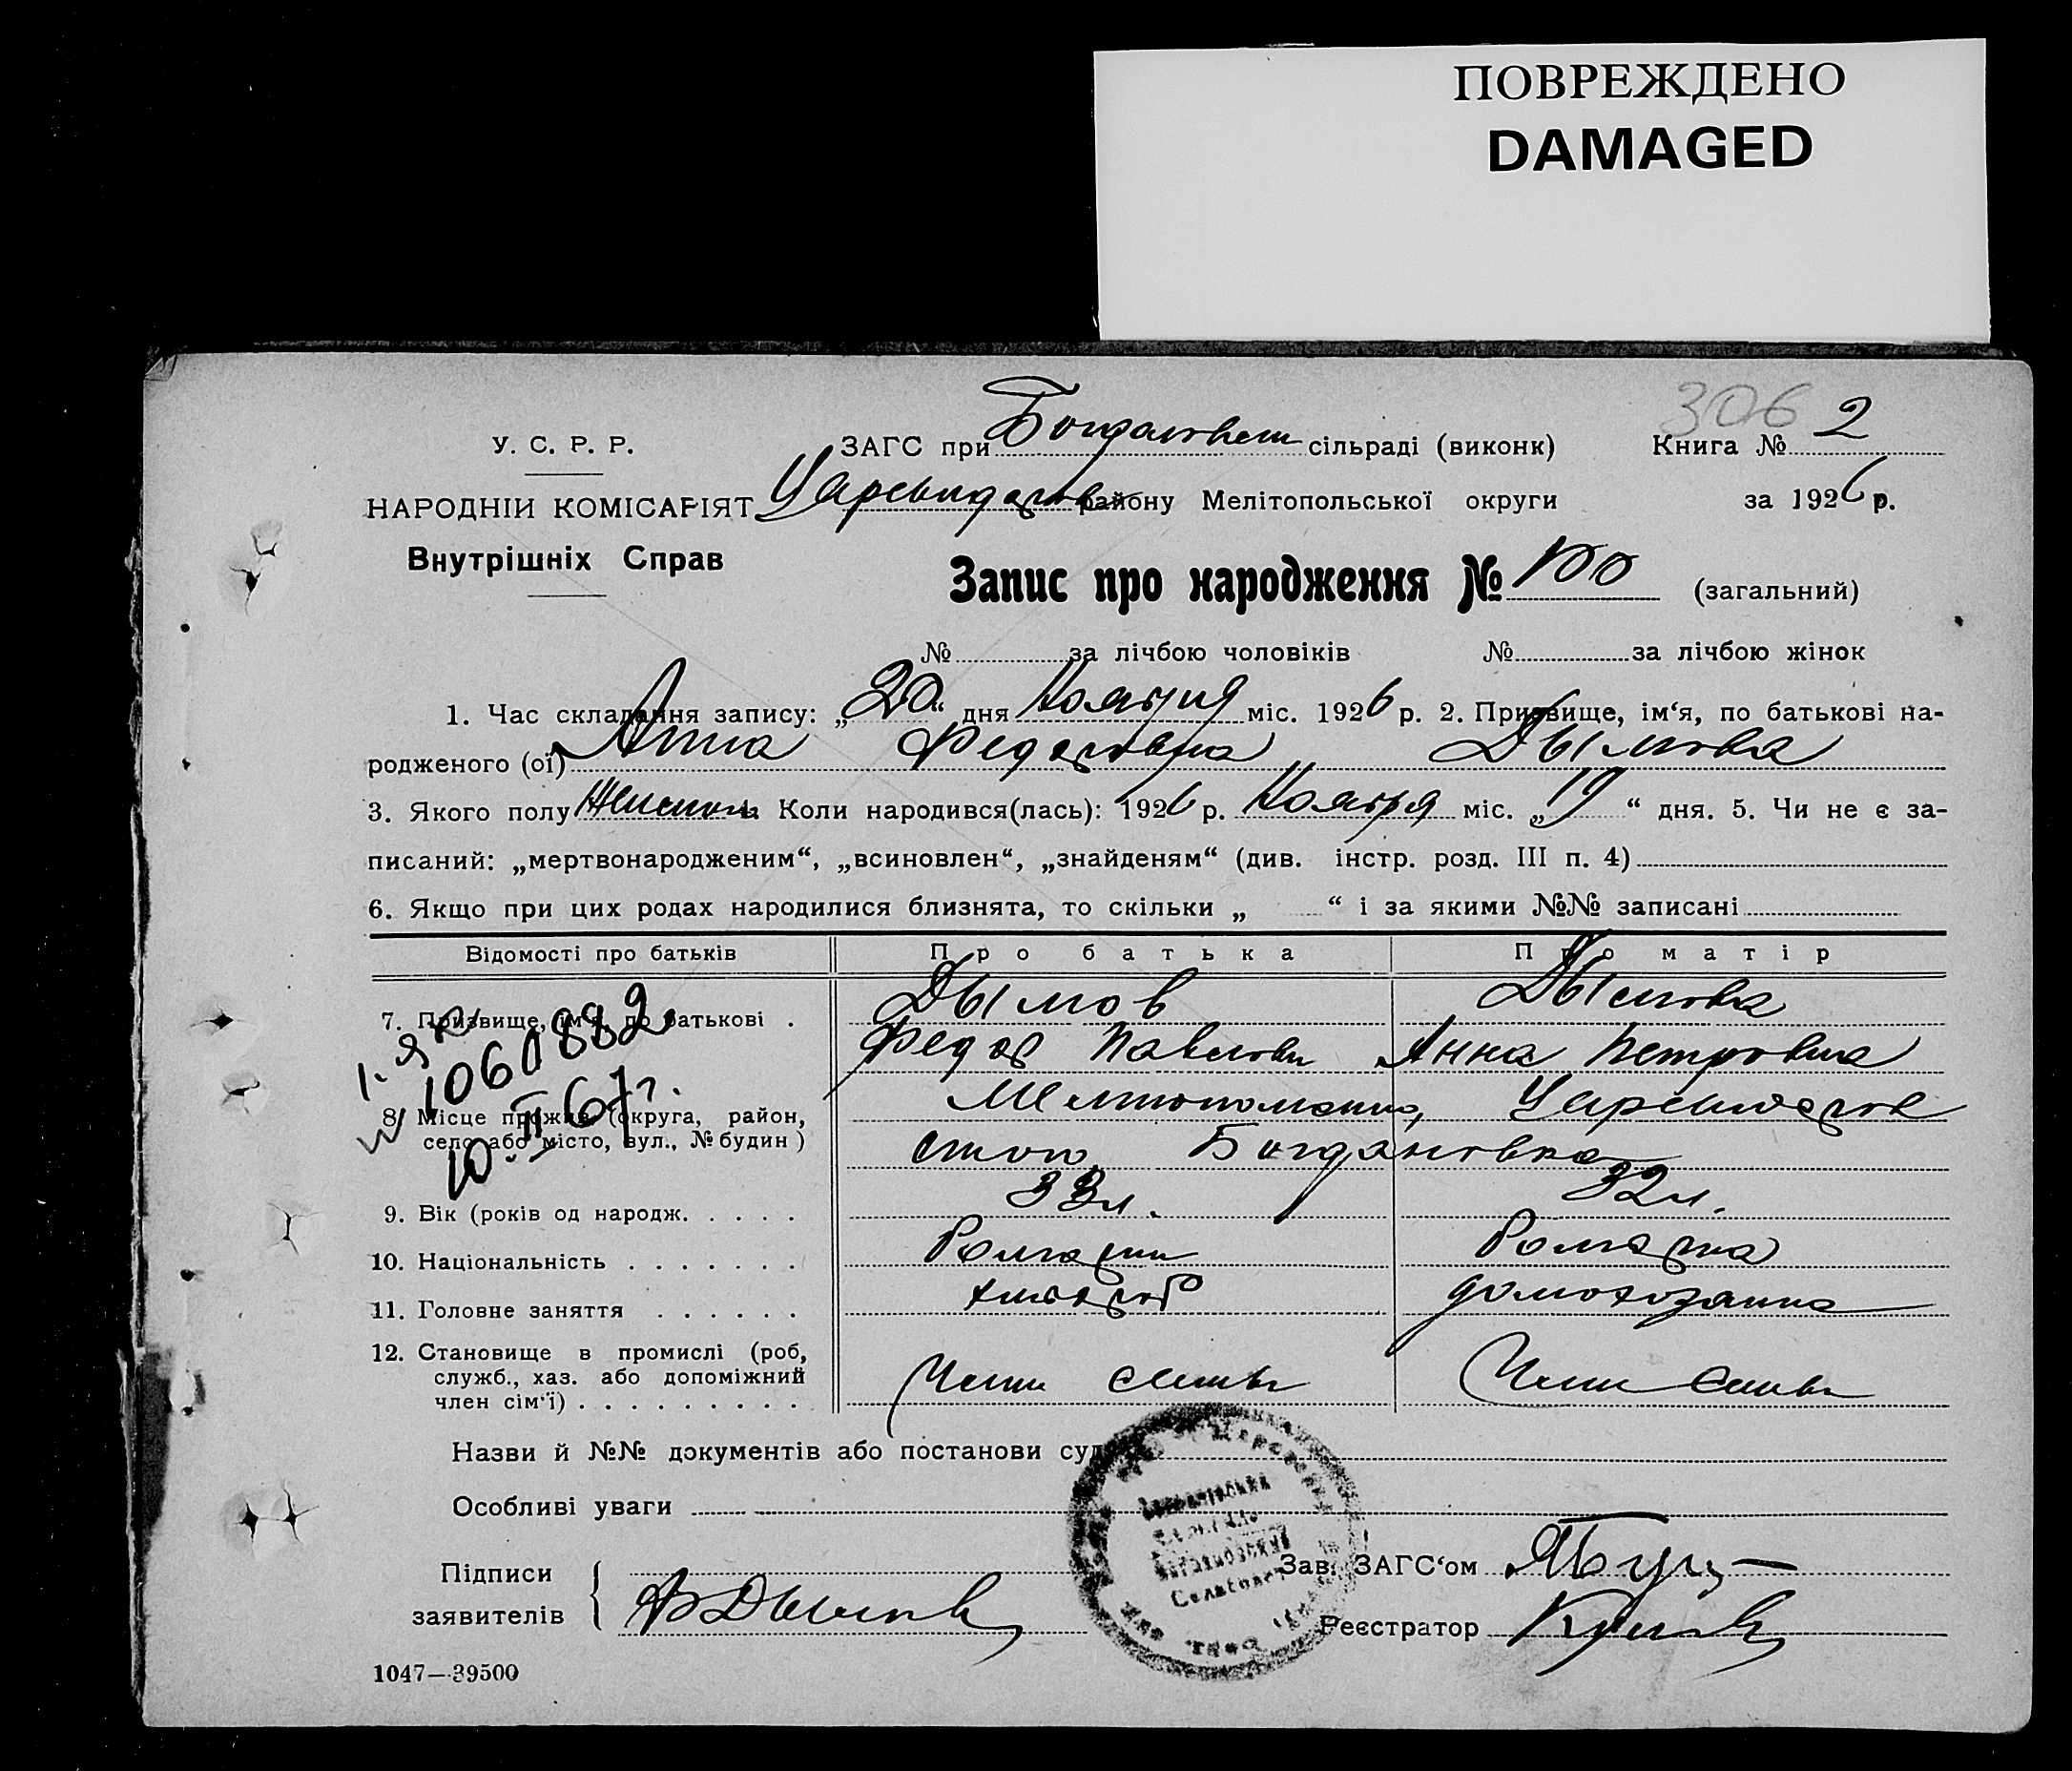 ПОВРЕЖДЕНО
DAMAGED
306
У. С. Р. Р.
ЗАГС при Богдановст сільраді (виконк) Книга № 2
НАРОДНІЙ КОМІСАРІЯТ Царевидаров району Мелітопольської округи за 1926 р.
Внутрішніх Справ
Запис про народження № 100 (загальний)
№ за лічбою чоловіків № за лічбою жінок
1. Час складання запису: „20“ дня Ноября міс. 1926 р. 2. Призвище, ім‘я, по батькові на-
родженого (ої) Анна Федоровна Дымова
3. Якого полу Женского Коли народився(лась): 1926 р. Ноября міс. „19“ дня. 5. Чи не є за-
писаний: „мертвонародженим“, „всиновлен“, „знайденям“ (див. інстр. розд. III п. 4)
6. Якщо при цих родах народилися близнята, то скільки „ “ і за якими №№ записані
Відомості про батьків Про батька Про матір
7. Призвище, ім‘я, по батькові . Дымов Дымова
Федор Павлович Анна Петровна
8. Місце прожив. (округа, район, Мелитопольщина, Царевидаров
село або місто, вул., № будин) Богдановка
1060882
10. II 67 г.
9. Вік (років од народж. . . . . 33 л. 32 л.
10. Національність . . . . . . . Болгарин Болгарка
11. Головне заняття . . . . . . хлебороб домохозяйка
12. Становище в промислі (роб,
служб., хаз. або допоміжний Член семьи Член семьи
член сім‘ї) . . . . . . . . . .
Назви й №№ документів або постанови суд
Особливі уваги
Підписи Зав. ЗАГС‘ом
заявителів Дымов Реєстратор
1047—39500